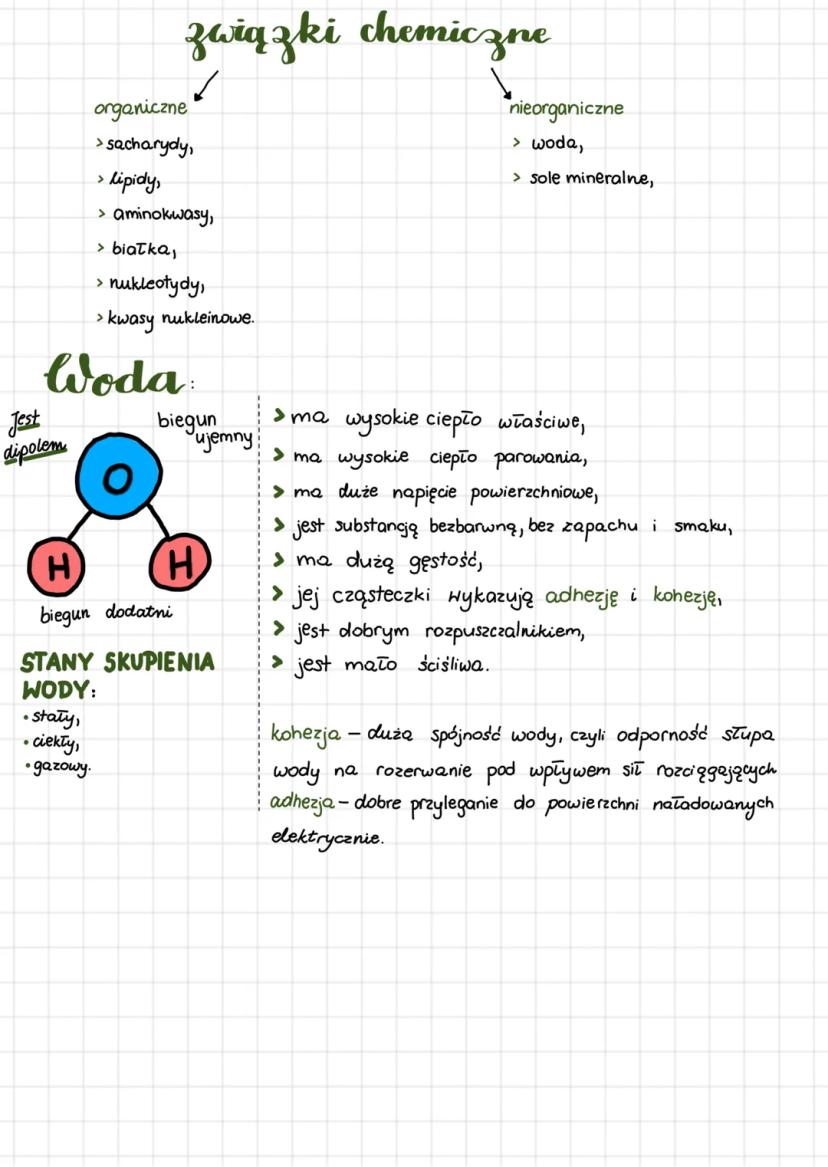 związki chemiczne
organiczne
> sacharydy,
> lipidy,
> aminokwasy,
> białka,
> nukleotydy,
> kwasy nukleinowe.
nieorganiczne
> woda,
> sole mineralne,
Woda:
Jest
dipolem
biegun
ujemny
O
H H
biegun dodatni
STANY SKUPIENIA
WODY:
• stały,
• ciekły,
• gazowy.
> ma wysokie ciepło właściwe,
> ma wysokie ciepło parowania,
> ma duże napięcie powierzchniowe,
> jest substancją bezbarwną, bez zapachu i smaku,
> ma dużą gęstość,
> jej cząsteczki wykazują adhezję i kohezję,
> jest dobrym rozpuszczalnikiem,
> jest mało ściśliwa.
kohezja – duża spójność wody, czyli odporność słupa
wody na rozerwanie pod wpływem sił rozciągających
adhezja – dobre przyleganie do powierzchni naładowanych
elektrycznie.